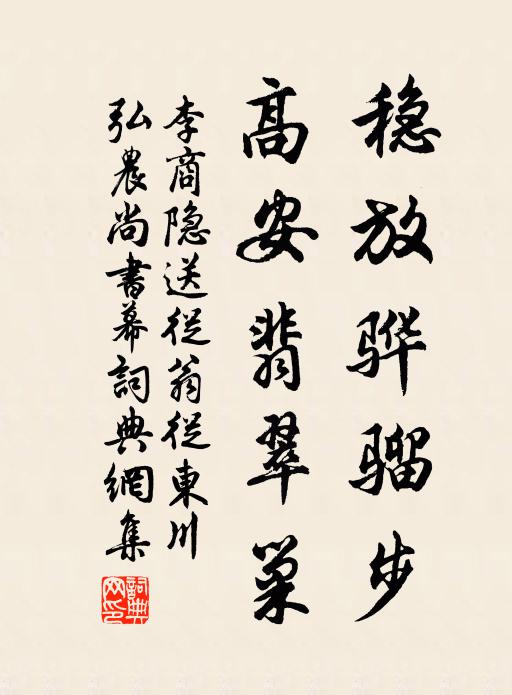 稳放骅骝步
高安翡翠巢
李商隐送從翁從東川
弘農尚書幕詞典網集